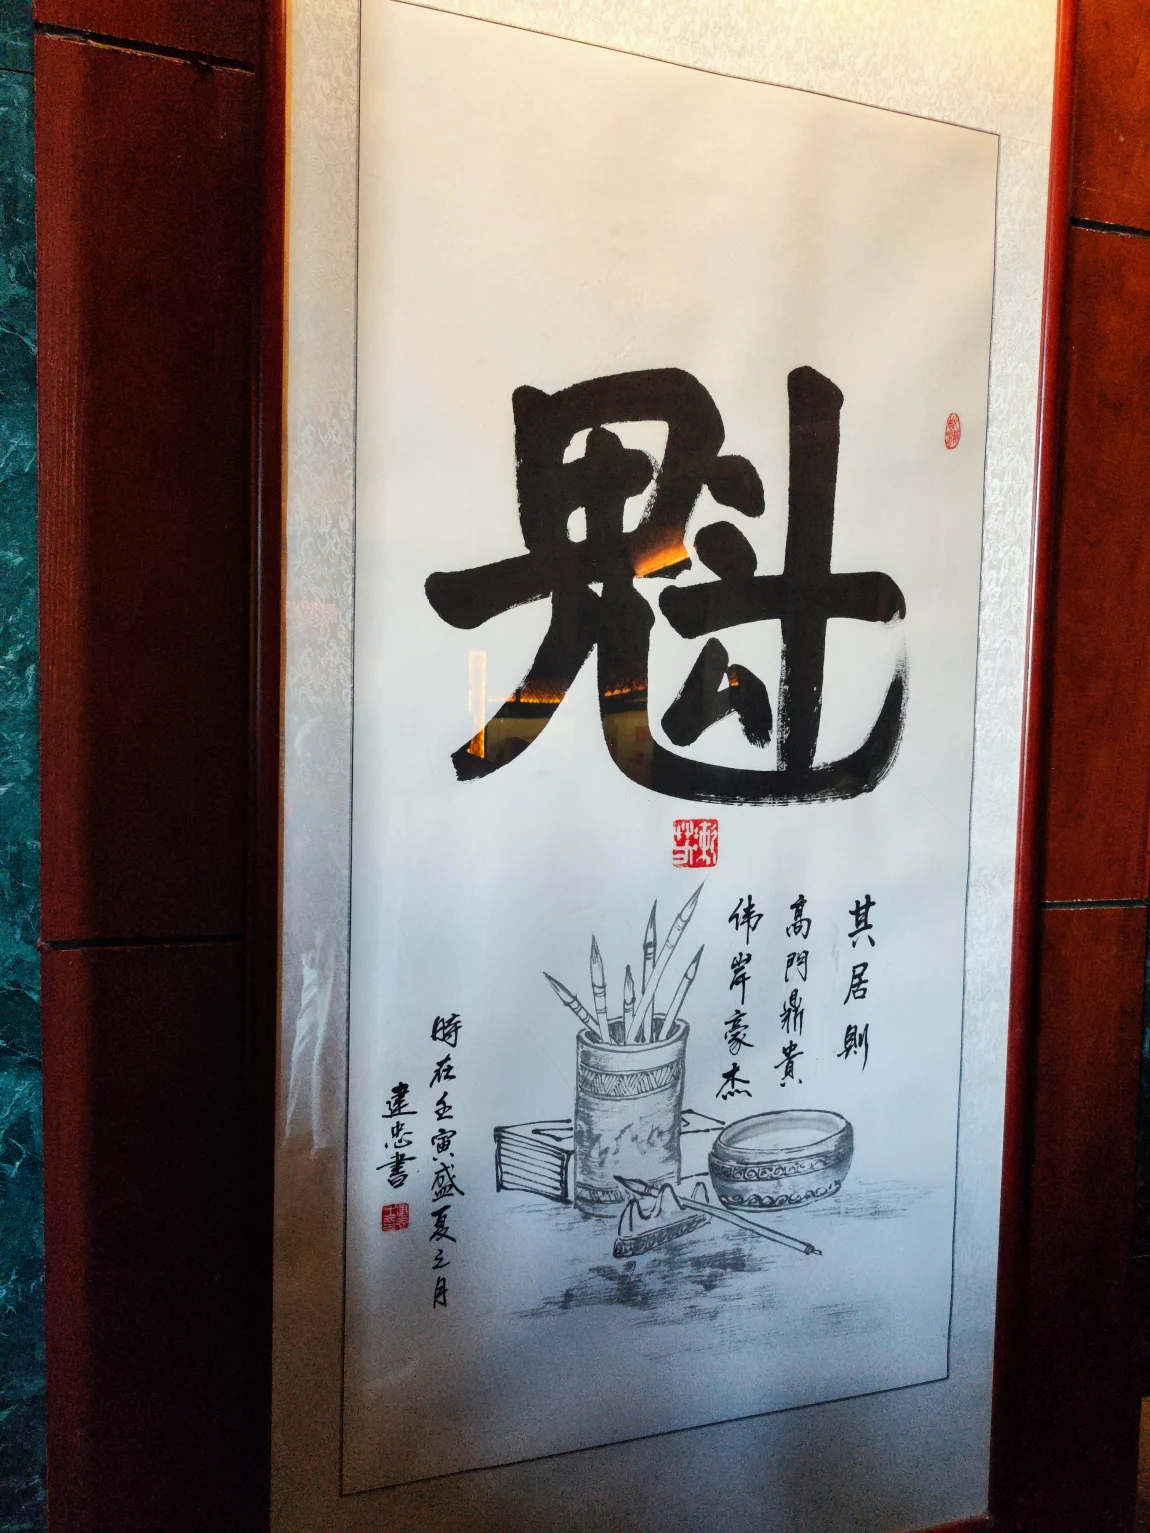 魁
其居則
高門鼎貴
伟岸豪杰
時在壬寅盛夏之月
建忠書